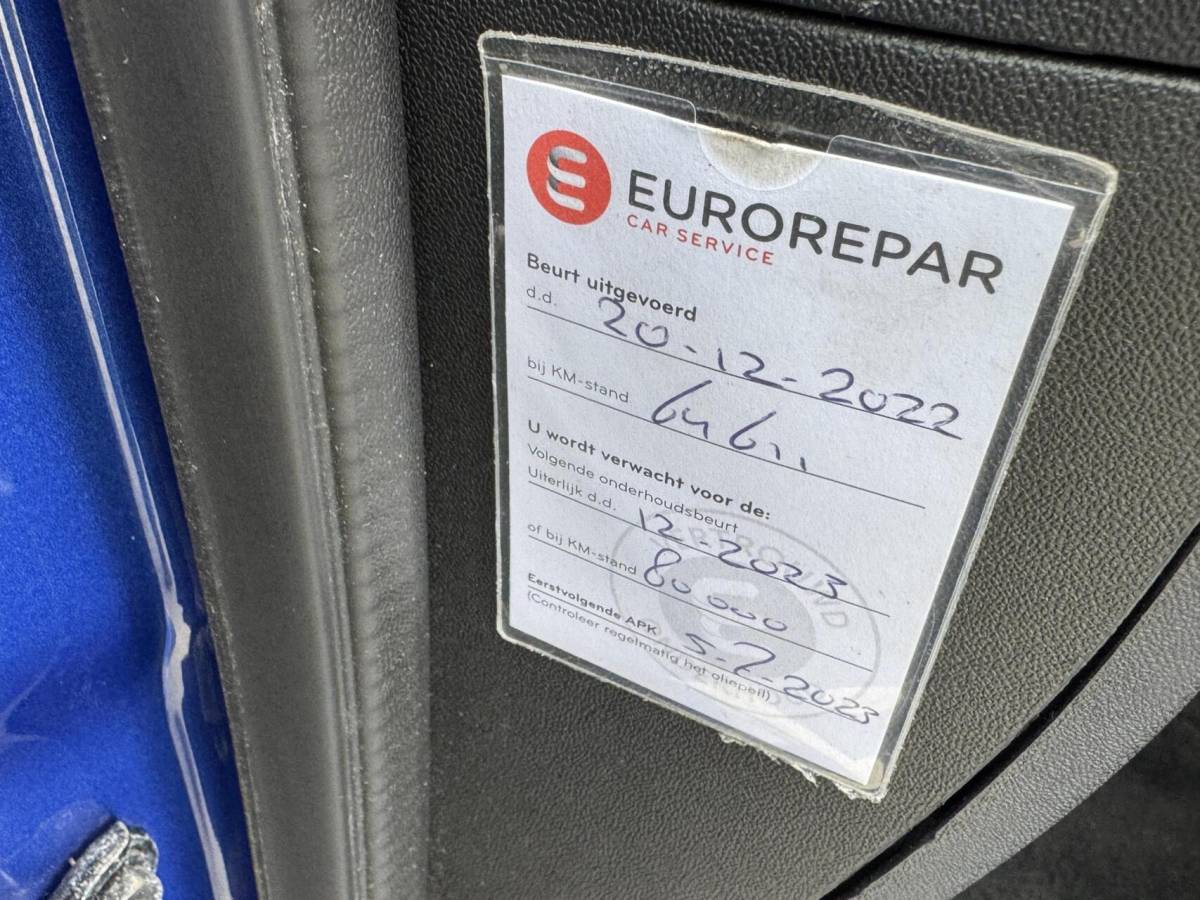 EUROREPAR
CAR SERVICE
Beurt uitgevoerd
d.d. 20-12-2022
bij KM-stand 64611
U wordt verwacht voor de:
Volgende onderhoudsbeurt
Uiterlijk d.d. 12-2023
of bij KM-stand 80000
Eerstvolgende APK 5-7-2023
(Controleer regelmatig het oliepeil)